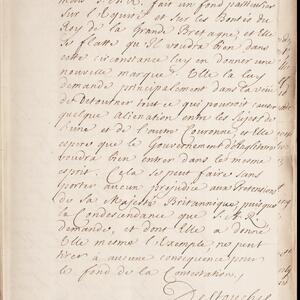 mais S. A. R. fait un fond particulier
sur l'Equité et sur les Bontés du
Roy de la Grande Bretagne; et Elle
se flatte qu'il voudra bien dans
cette circonstance luy en donner une
nouvelle marque. Elle la luy
demande principalement dans la vüe
de Detourner tout ce qui pourroit causer
quelque alienation entre les Sujets de
l'une et de l'autre Couronne, et Elle
espere que le Gouvernement d'Angleterre
voudra bien entrer dans le même
esprit. Cela se peut faire sans
porter aucun prejudice aux Pretensions
de Sa Majesté Britannique, puisque
la Condescendance que S. A. R.
demande, et dont Elle a donné
Elle mesme l'Exemple, ne peut
tirer à aucune consequence pour
le fond de la Contestation.
Destouches